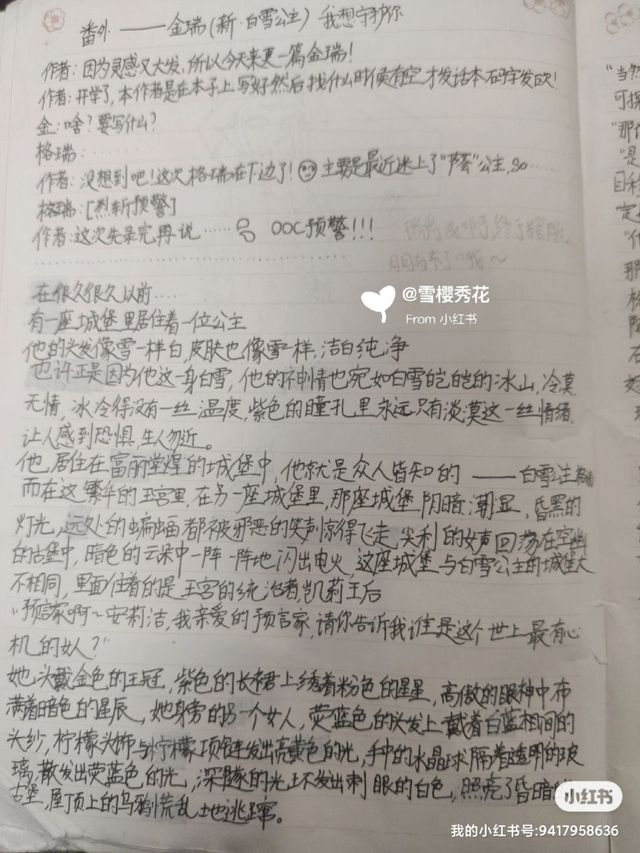 番外——金瑞(新·白雪公主) 我想守护你
作者:因为灵感又大发,所以今天来更一篇金瑞!
作者:开学了,本作者是在本子上写好然后找什么时候有空才发话本码字发哎!
金:啥?要写什么?
格瑞:……
作者:没想到吧!这次格瑞在下边了! 主要是最近迷上了“瑞”公主,so……
格瑞:[烈斩预警]
作者:这次先杀完再说…… OOC预警!!!
在很久很久以前……
有一座城堡里居住着一位公主
他的头发像雪一样白,皮肤也像雪一样,洁白纯净
也许正是因为他这一身白雪,他的神情也宛如白雪皑皑的冰山,冷漠
无情,冰冷得没有一丝温度,紫色的瞳孔里永远只有淡漠这一丝情绪,
让人感到恐惧,生人勿近。
他居住在富丽堂煌的城堡中,他就是众人皆知的——白雪公主
而在这繁华的王宫里,在另一座城堡里,那座城堡阴暗潮显,昏黑的
灯光,远处的蝙蝠都被邪恶的笑声惊得飞走,尖利的女声回荡在空幽
的古堡中,暗色的云朵中一阵一阵地闪出电火,这座城堡与白雪公主的城堡大
不相同,里面住着的是王宫的统治者,凯莉王后
“预言家啊~安莉洁,我亲爱的预言家,请你告诉我谁是这个世上最有心
机的女人?”
她头戴金色的王冠,紫色的长裙上绣着粉色的星星,高傲的眼神中布
满着暗色的星辰,她身旁的另一个女人,荧蓝色的头发上戴着白蓝相间的
头纱,柠檬头饰与柠檬项链发出亮黄色的光,手中的水晶球隔着透明的玻
璃,散发出荧蓝色的光,深邃的光球发出刺眼的白色,照亮了昏暗的
古堡,屋顶上的乌鸦慌乱土地逃蹿。
@雪樱秀花
From 小红书
小红书
我的小红书号:9417958636
“当然
可探
“那
“是
目利
定
“他
那